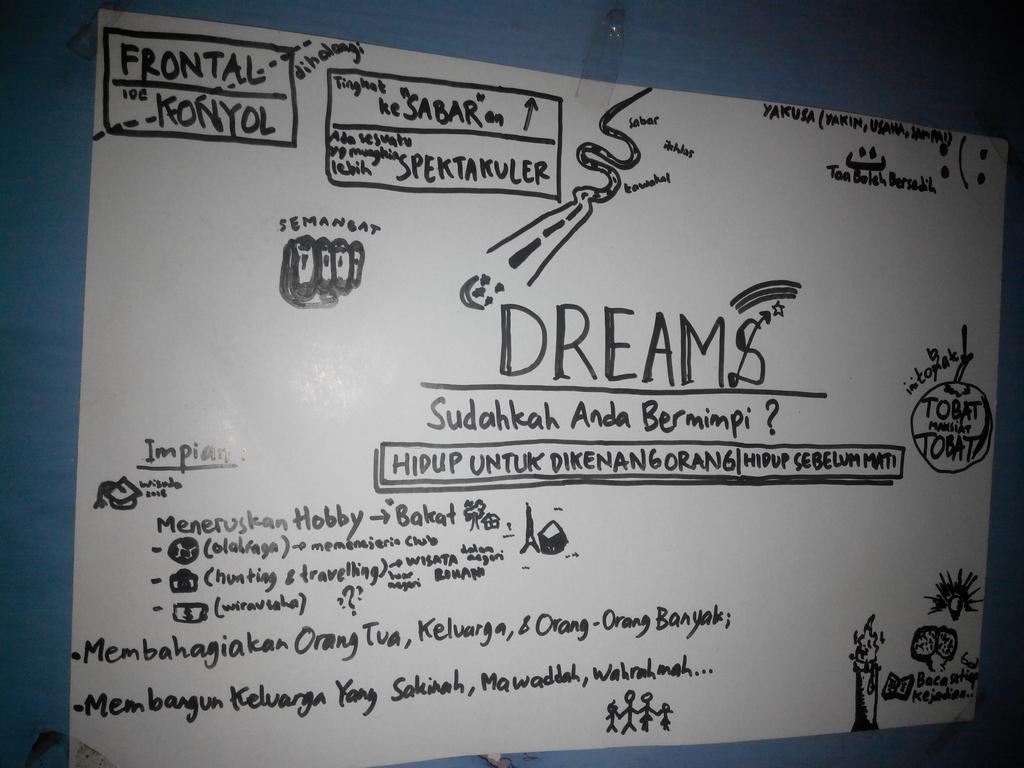 FRONTAL
dihalangi
IDE
KONYOL
Tingkat
ke"SABAR"an
Ada sesuatu
yg mungkin
lebih SPEKTAKULER
sabar
ikhlas
tawakal
YAKUSA (YAKIN, USAHA, SAMPAI)
Taa Boleh Bersedih
SEMANGAT
DREAMS
Sudahkah Anda Bermimpi ?
HIDUP UNTUK DIKENANG ORANG | HIDUP SEBELUM MATI
TOBAT
MAKSIAT
TOBAT
Impian:
wisuda
2016
Meneruskan Hobby → Bakat
- (olahraga) → memanajerin Club
- (hunting & travelling) → WISATA dalam negeri
luar negeri ROHANI
- $ (wirausaha) ???
• Membahagiakan Orang Tua, Keluarga, & Orang-Orang Banyak;
• Membangun Keluarga Yang Sakinah, Mawaddah, Wahrahmah...
Baca setiap
Kejadian..